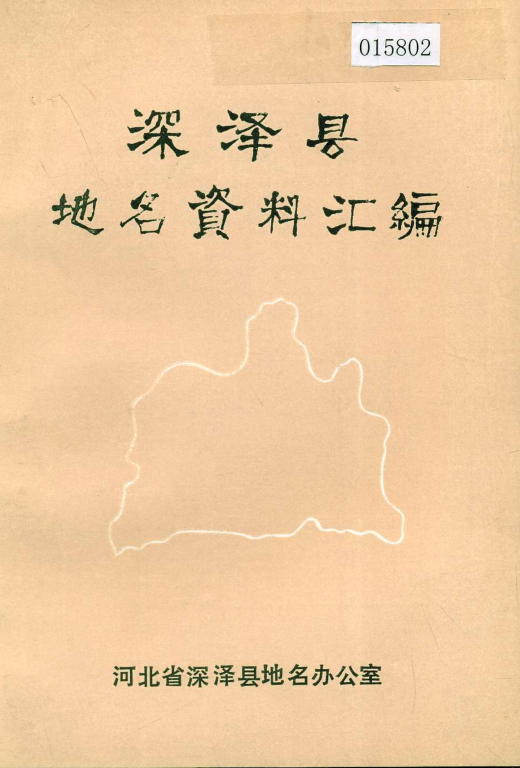 015802
深泽县
地名資料汇編
河北省深泽县地名办公室